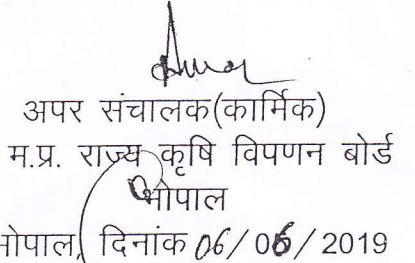 अपर संचालक(कार्मिक)
म.प्र. राज्य कृषि विपणन बोर्ड
भोपाल
भोपाल, दिनांक 06/06/2019